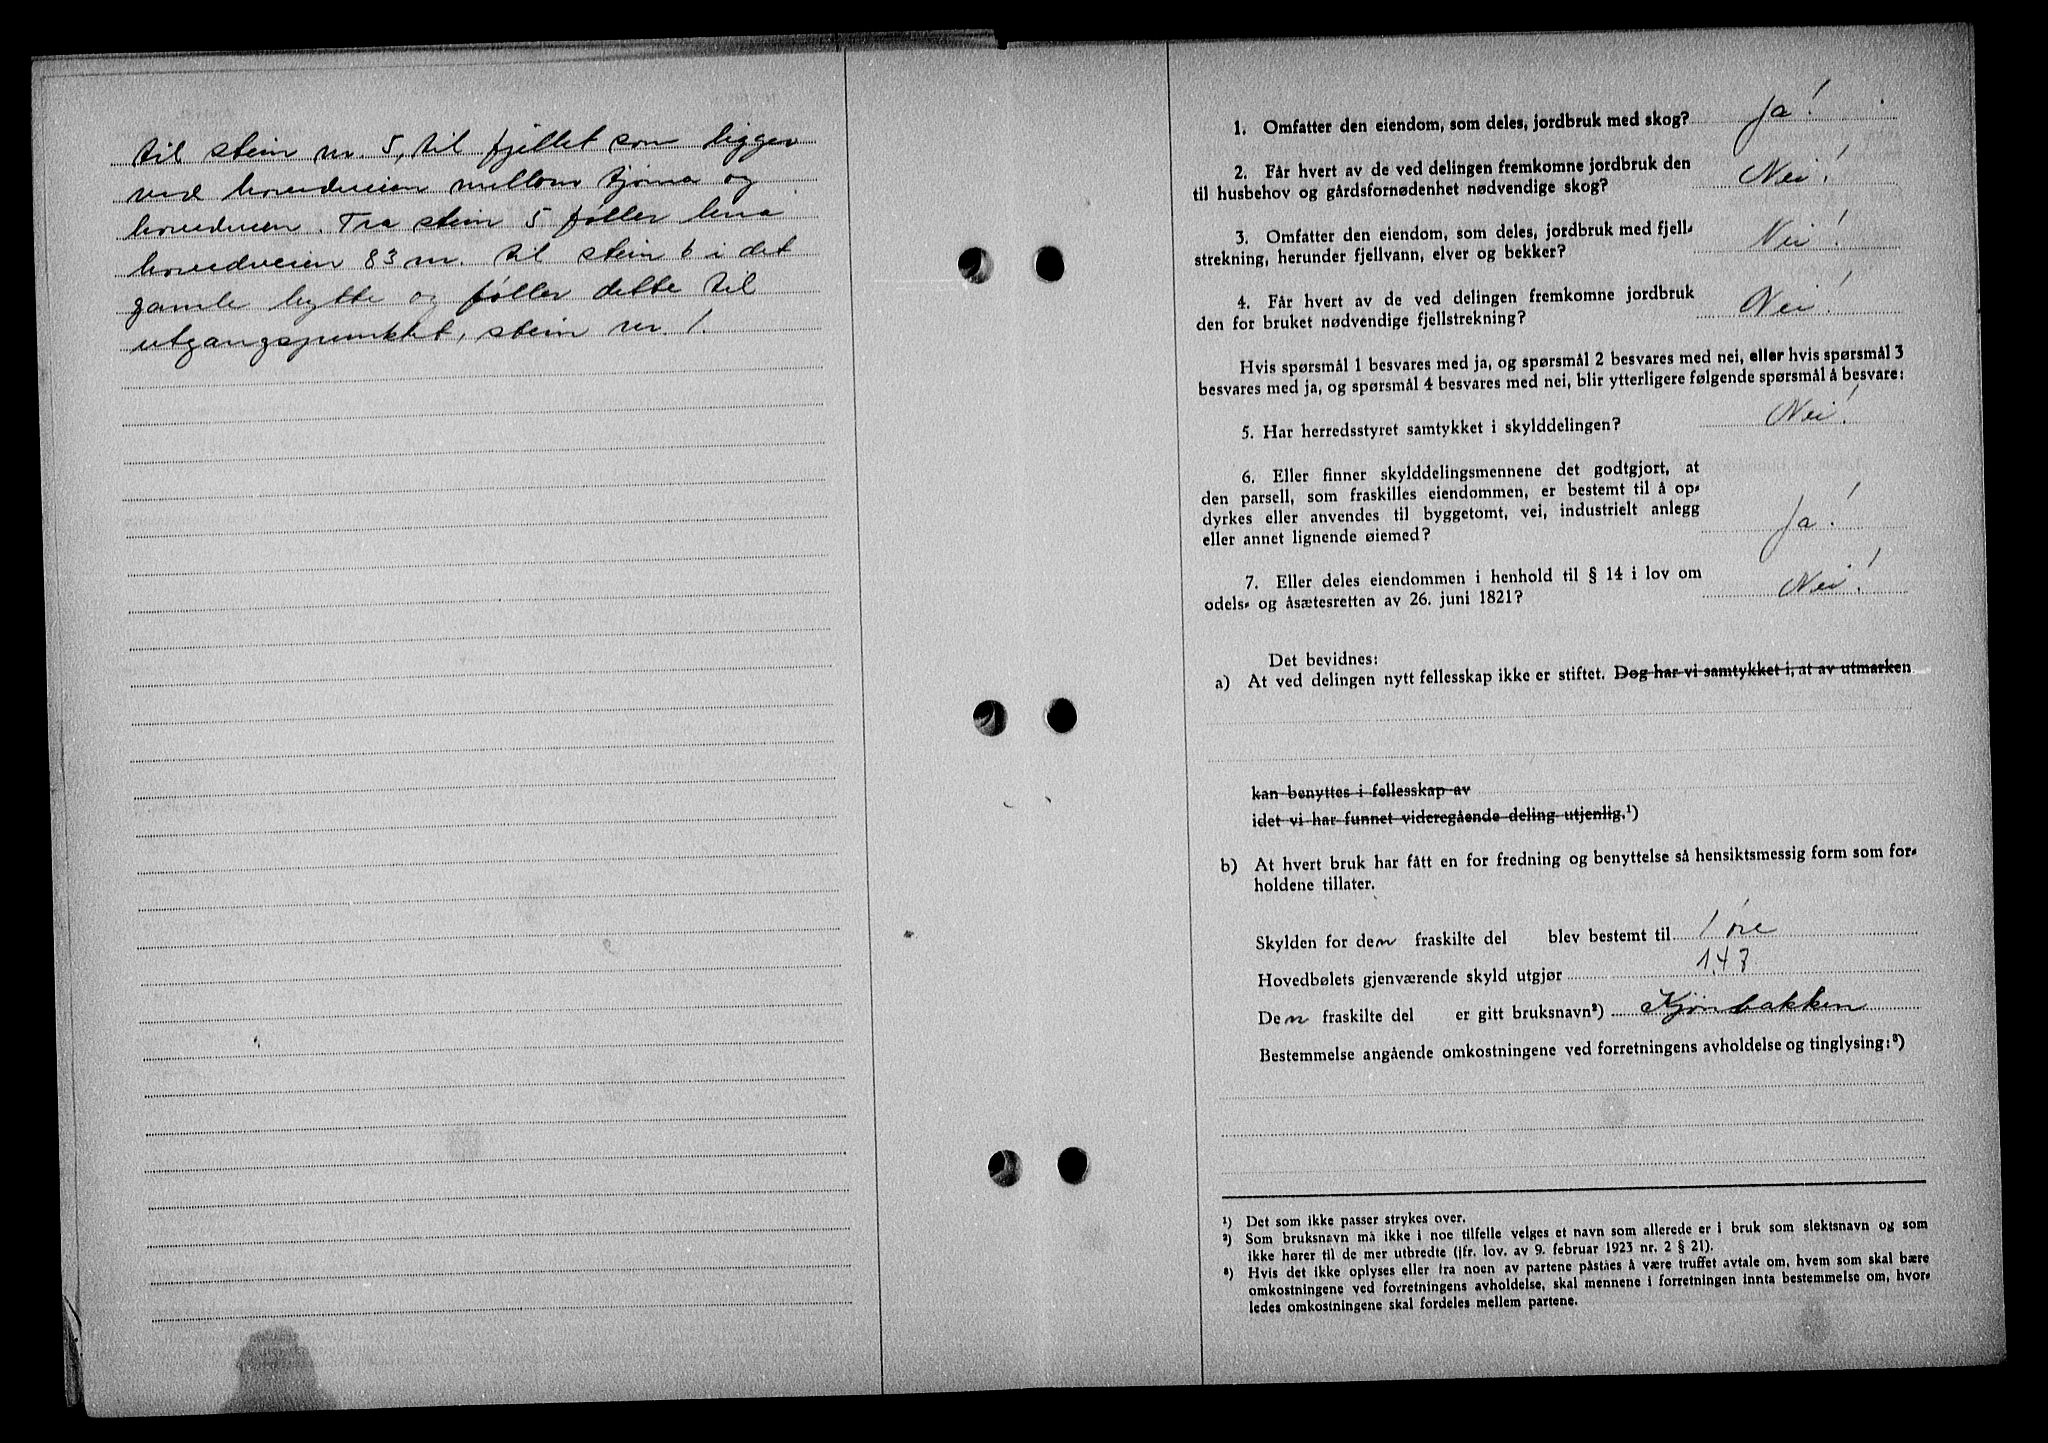 til stein nr. 5, til fjellet som ligger
ved hovedveien mellom tjerna og
hovedveien. Fra stein 5 føller lina
hovedveien 83 m. til stein 6 i det
gamle bytte og føller dette til
utgangspunktet, stein nr. 1.
1. Omfatter den eiendom, som deles, jordbruk med skog? Ja!
2. Får hvert av de ved delingen fremkomne jordbruk den
til husbehov og gårdsfornødenhet nødvendige skog? Nei!
3. Omfatter den eiendom, som deles, jordbruk med fjell-
strekning, herunder fjellvann, elver og bekker? Nei!
4. Får hvert av de ved delingen fremkomne jordbruk
den for bruket nødvendige fjellstrekning? Nei!
Hvis spørsmål 1 besvares med ja, og spørsmål 2 besvares med nei, eller hvis spørsmål 3
besvares med ja, og spørsmål 4 besvares med nei, blir ytterligere følgende spørsmål å besvare:
5. Har herredsstyret samtykket i skylddelingen? Nei!
6. Eller finner skylddelingsmennene det godtgjort, at
den parsell, som fraskilles eiendommen, er bestemt til å op-
dyrkes eller anvendes til byggetomt, vei, industrielt anlegg
eller annet lignende øiemed? Ja!
7. Eller deles eiendommen i henhold til § 14 i lov om
odels- og åsætesretten av 26. juni 1821? Nei!
Det bevidnes:
a) At ved delingen nytt fellesskap ikke er stiftet. Dog har vi samtykket i, at av utmarken
kan benyttes i fellesskap av
idet vi har funnet videregående deling utjenlig.¹)
b) At hvert bruk har fått en for fredning og benyttelse så hensiktsmessig form som for-
holdene tillater.
Skylden for den fraskilte del blev bestemt til 1 øre
Hovedbølets gjenværende skyld utgjør 1,43
Den fraskilte del er gitt bruksnavn²) Kjønbakken
Bestemmelse angående omkostningene ved forretningens avholdelse og tinglysing:³)
¹) Det som ikke passer strykes over.
²) Som bruksnavn må ikke i noe tilfelle velges et navn som allerede er i bruk som slektsnavn og som
ikke hører til de mer utbredte (jfr. lov. av 9. februar 1923 nr. 2 § 21).
³) Hvis det ikke oplyses eller fra noen av partene påståes å være truffet avtale om, hvem som skal bære
omkostningene ved forretningens avholdelse, skal mennene i forretningen innta bestemmelse om, hvor-
ledes omkostningene skal fordeles mellem partene.